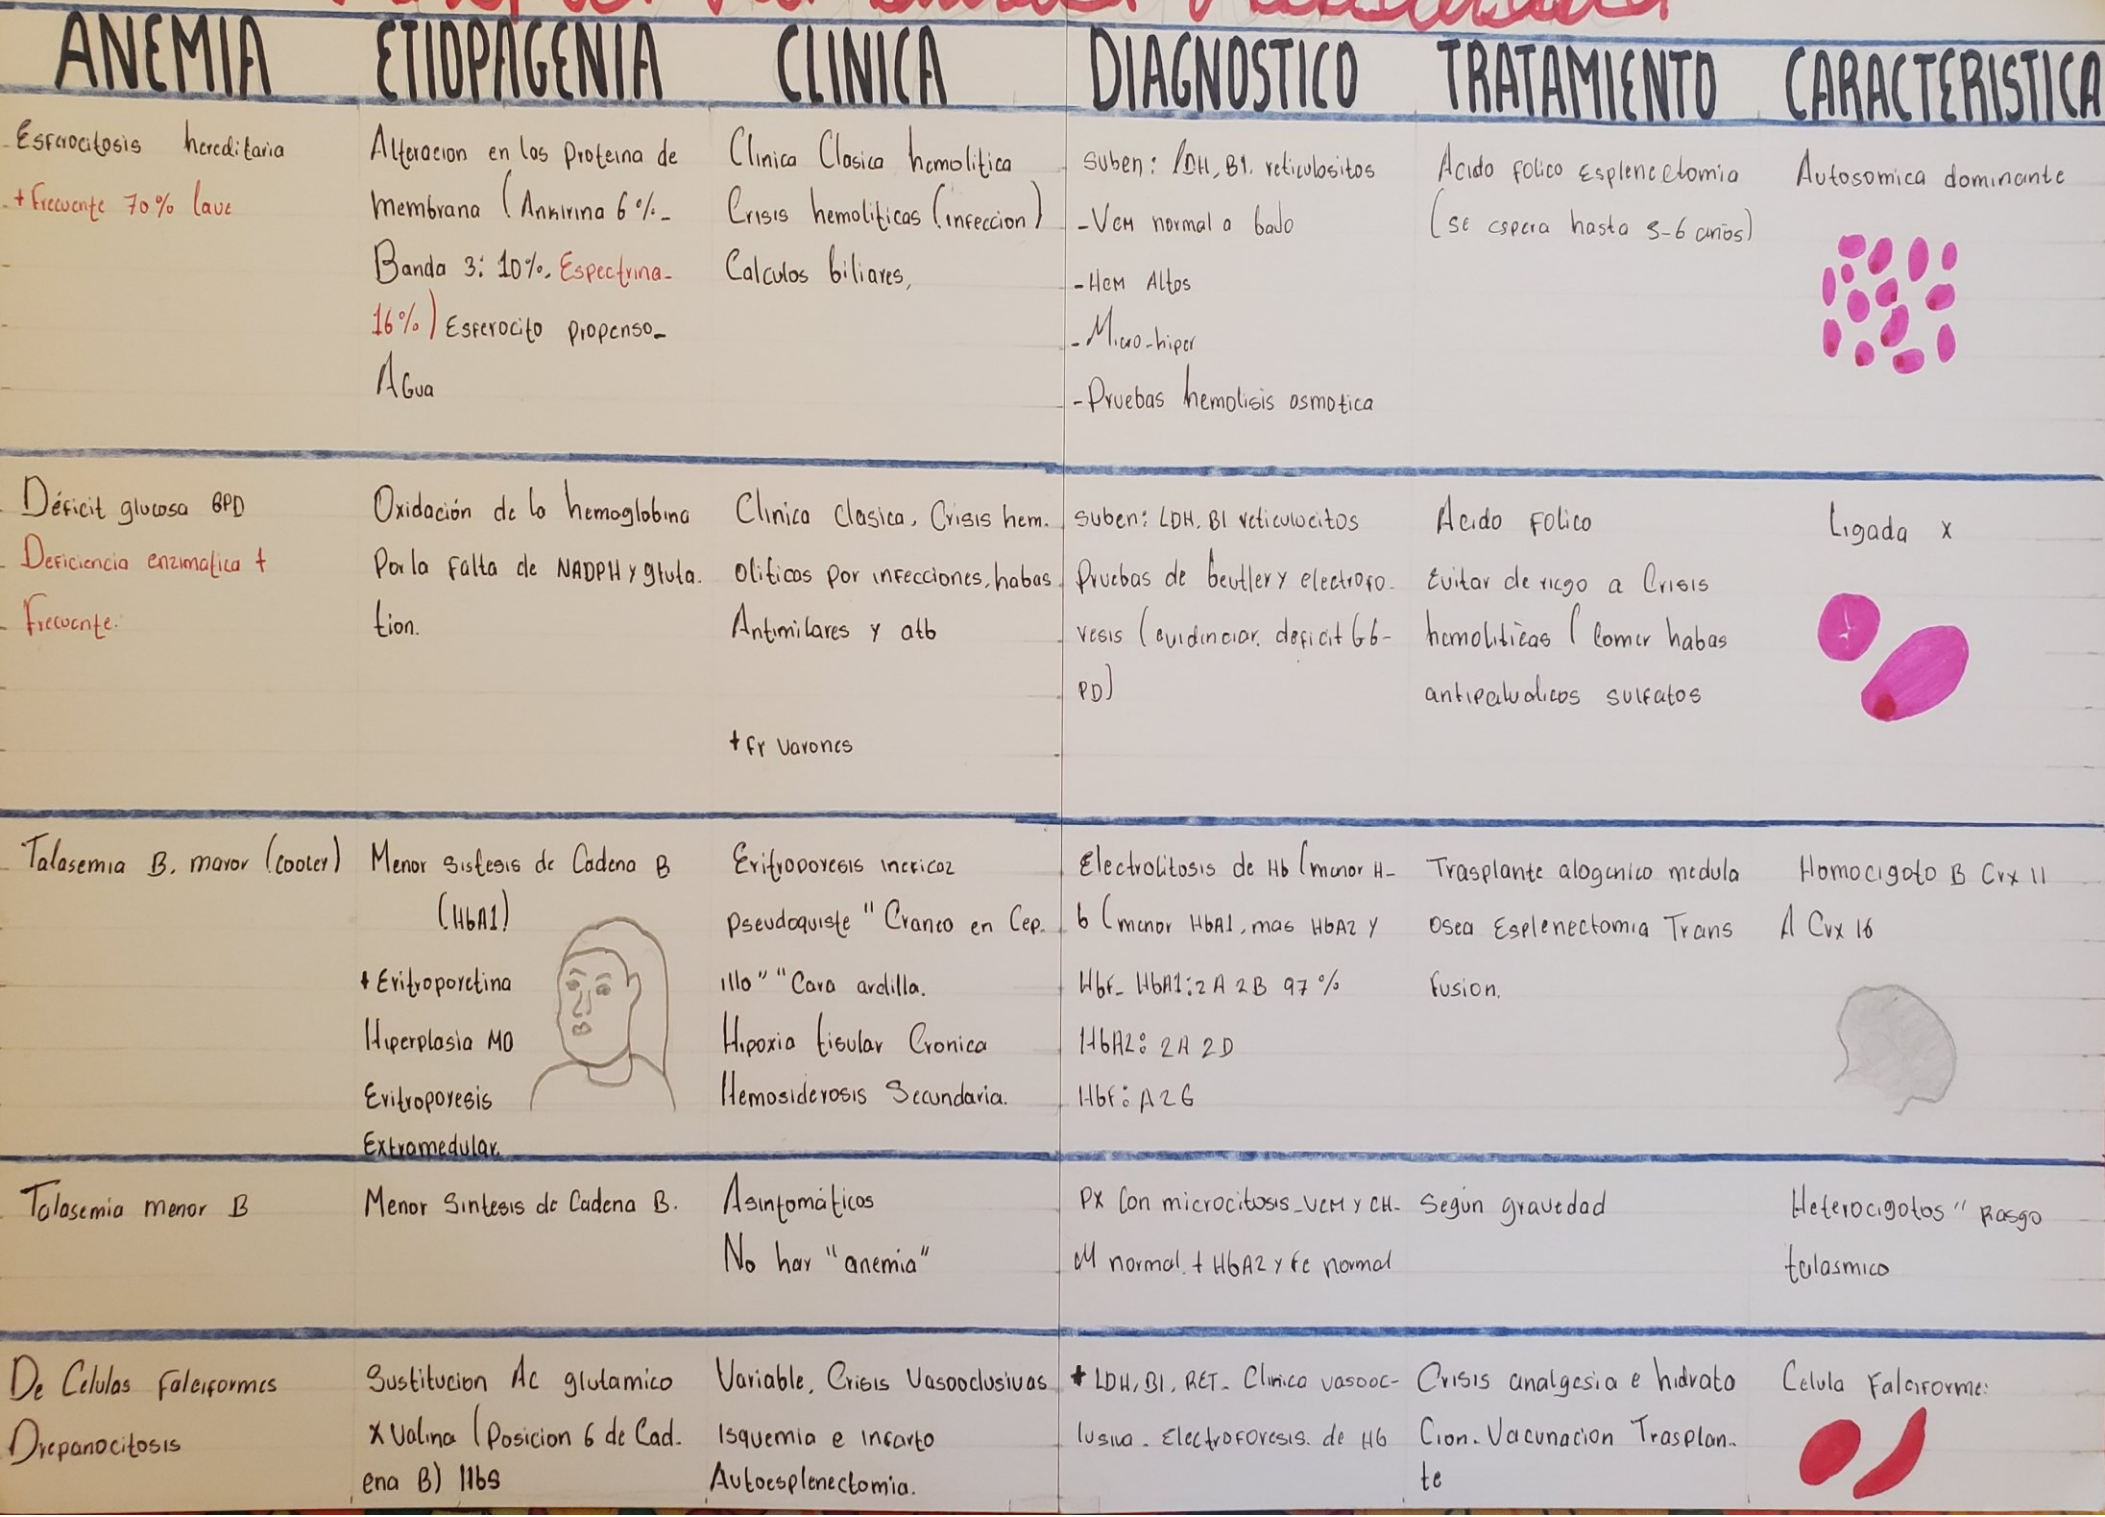 ANEMIA ETIOPAGENIA CLINICA DIAGNOSTICO TRATAMIENTO CARACTERISTICA
Esferocitosis hereditaria
+ Frecuente 70% lave
Alteracion en las Proteina de
membrana (Ankirina 6%-
Banda 3: 10%. Espectrina-
16%) Esferocito propenso-
Agua
Clinica Clasica hemolitica
Crisis hemoliticas (infeccion)
Calculos biliares,
suben: LDH, B1. reticulositos
- VCM normal a bajo
- HCM Altos
- Micro-hiper
- Pruebas hemolisis osmotica
Acido folico Esplenectomia
(se espera hasta 5-6 años)
Autosomica dominante
Déficit glucosa 6PD
Deficiencia enzimatica +
Frecuente.
Oxidación de la hemoglobina
Por la falta de NADPH y gluta.
tion.
Clinica clasica, Crisis hem.
oliticas por infecciones, habas
Antimilares y atb
+ fr varones
suben: LDH. BI reticulocitos
Pruebas de beutler y electrofo.
resis (evidinciar. deficit G6-
PD)
Acido Folico
Evitar de riego a Crisis
hemolíticas (Comer habas
antipaludicos sulfatos
Ligada x
Talasemia B. mayor (cooler)
Menor sistesis de Cadena B
(HbA1)
+ Eritroporetina
Hiperplasia MO
Eritroporesis
Extramedular.
Eritroporesis ineficaz
Pseudoquiste " Craneo en Cep.
illo" "Cara ardilla.
Hipoxia tisular Cronica
Hemosiderosis Secundaria.
Electrolitosis de Hb (menor H-
b (menor HbA1, mas HbA2 y
HbF- HbA1: 2A 2B 97%
HbA2: 2A 2D
HbF: A2G
Trasplante alogenico medula
osea Esplenectomia Trans
fusion.
Homocigoto B Crx 11
A Crx 16
Talasemia menor B
Menor Sintesis de Cadena B.
Asintomáticos
No hay "anemia"
PX Con microcitosis-VCM y CH-
M normal. + HbA2 y Fe normal
Según gravedad
Heterocigotos " Rasgo
talasmico
De Celulas falciformes
Drepanocitosis
Sustitucion Ac glutamico
x Valina (Posicion 6 de Cad.
ena B) Hbs
Variable, Crisis Vasooclusivas
Isquemia e infarto
Autoesplenectomia.
+ LDH, BI, RET- Clinica vasooc-
lusiva. Electroforesis. de Hb
Crisis analgesia e hidrata
Cion. Vacunacion Trasplan.
te
Celula Falciforme: